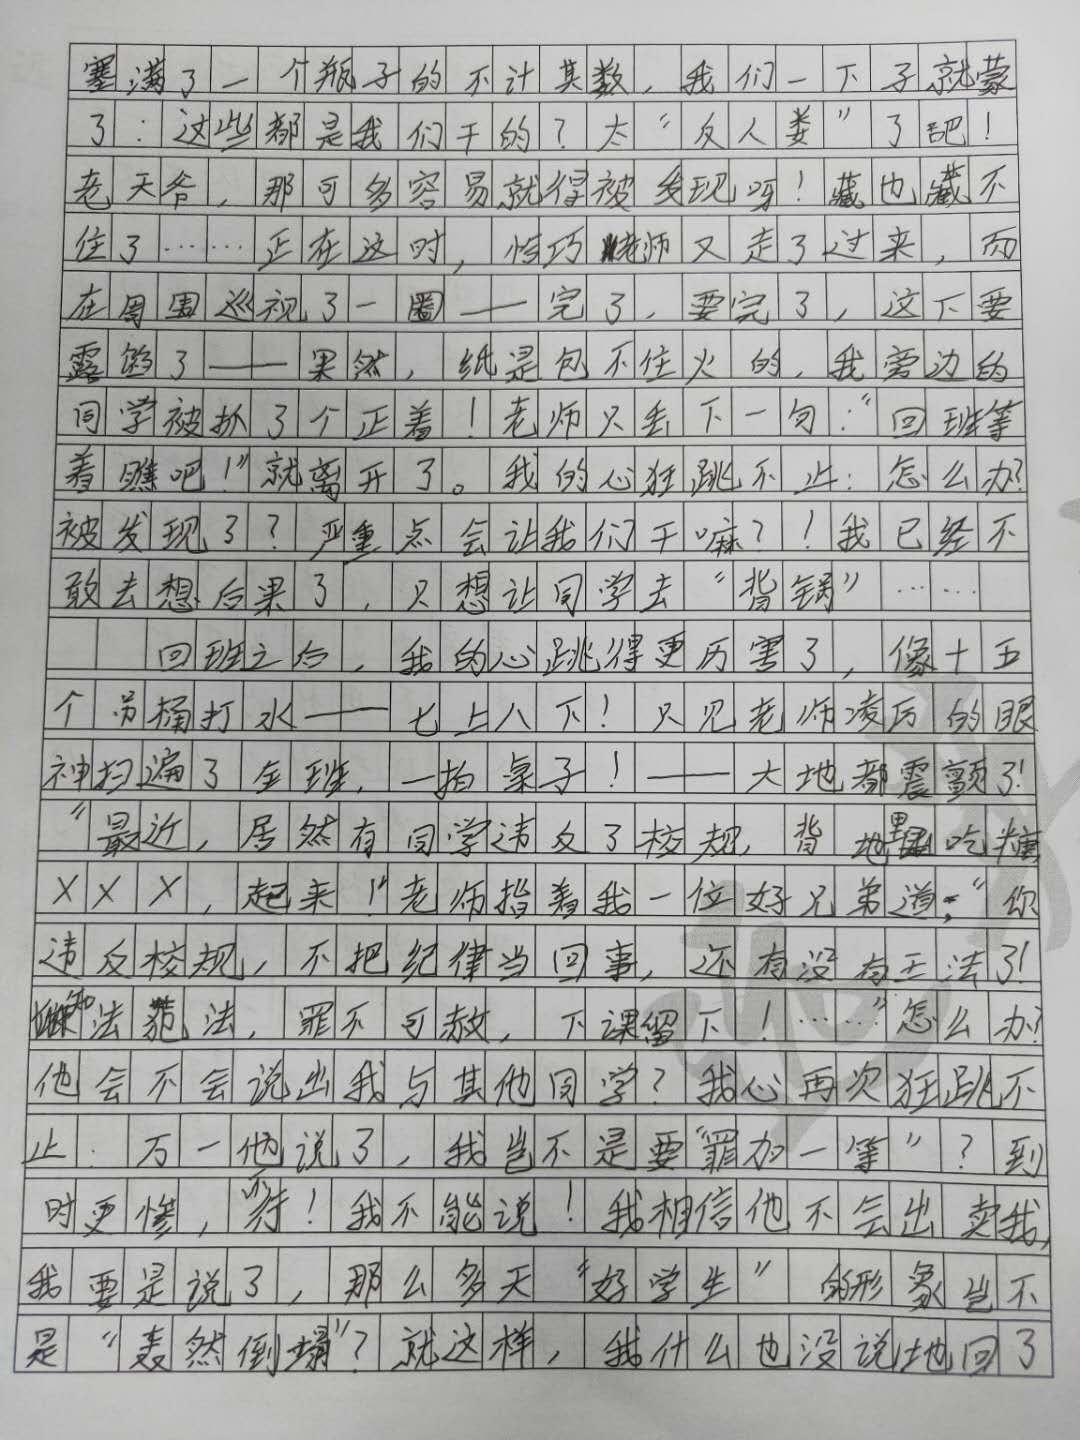 塞满了一个瓶子的不计其数，我们一下子就蒙
了：这些都是我们干的？太“反人类”了吧！
老天爷，那可多容易就得被发现呀！藏也藏不
住了……正在这时，恰巧老师又走了过来，而
在周围巡视了一圈——完了，要完了，这下要
露馅了——果然，纸是包不住火的，我旁边的
同学被抓了个正着！老师只丢下一句：“回班等
着瞧吧！”就离开了。我的心狂跳不止：怎么办？
被发现了？严重点会让我们干嘛？！我已经不
敢去想后果了，只想让同学去“背锅”……
回班之后，我的心跳得更厉害了，像十五
个吊桶打水——七上八下！只见老师凌厉的眼
神扫遍了全班，一拍桌子！——大地都震颤了！
“最近，居然有同学违反了校规，背地里吃糖，
XXX，起来！”老师指着我一位好兄弟道：“你
违反校规，不把纪律当回事，还有没有王法了！
知法范法，罪不可赦，下课留下！……”怎么办？
他会不会说出我与其他同学？我心再次狂跳不
止：万一他说了，我岂不是要“罪加一等”？到
时更惨，不行！我不能说！我相信他不会出卖我，
我要是说了，那么多天“好学生”的形象岂不
是“轰然倒塌”？就这样，我什么也没说地回了